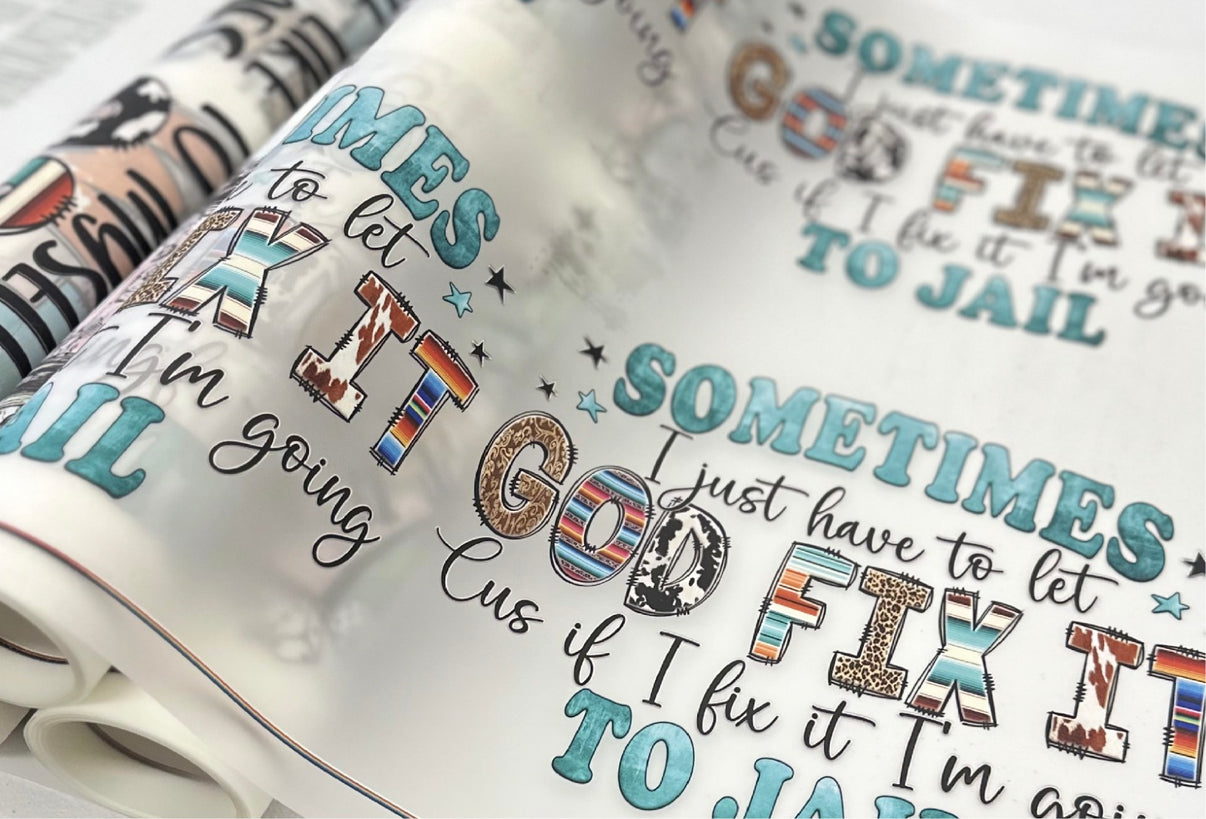 going
SOMETIMES
I just have to let
GOD FIX I
Cus if I fix it I'm go
TO JAIL
IMES
to let
IX IT
I'm going
AIL
SOMETIMES
I just have to let
GOD FIX IT
Cus if I fix it I'm goi
TO JAIL